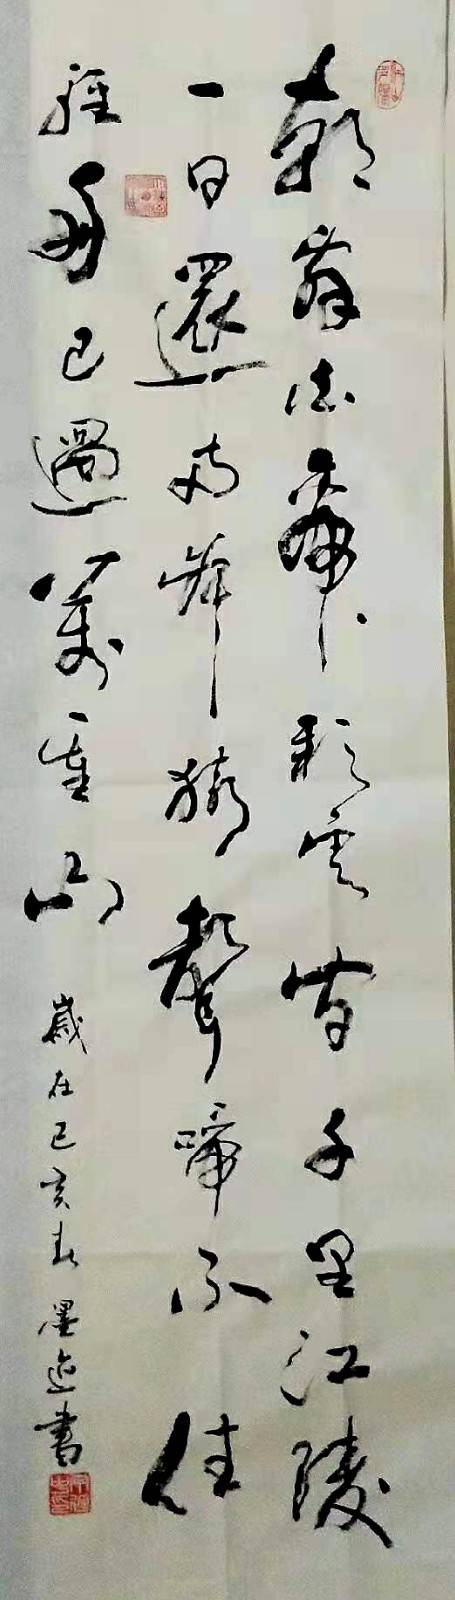 朝辞白帝彩云间千里江陵
一日還两岸猿聲啼不住
軽舟已過萬重山
歳在己亥春墨迹書